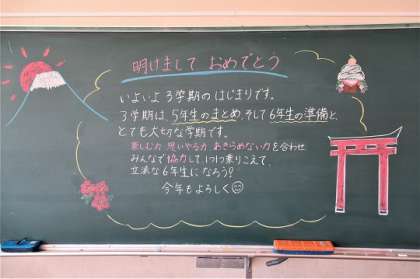 明けまして おめでとう
いよいよ3学期のはじまりです。
3学期は 5年生のまとめ、そして 6年生の準備と、
とても大切な学期です。
楽しむ力 思いやる力 あきらめない力を合わせ
みんなで協力して、1つ1つ乗りこえて、
立派な6年生になろう?
今年もよろしく